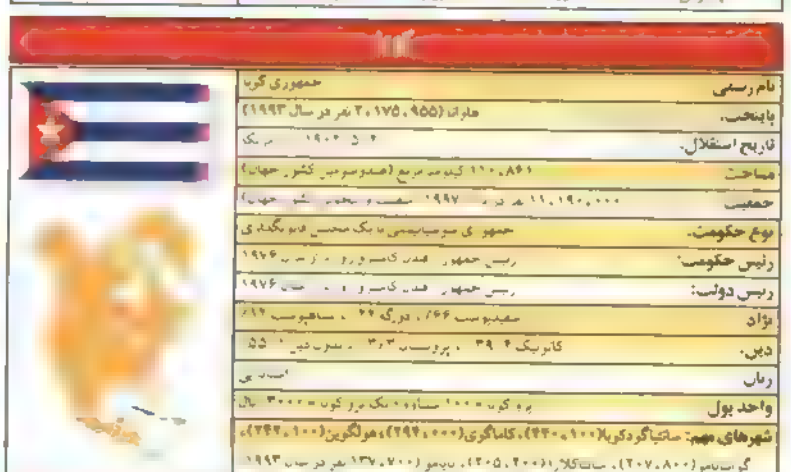 نام رسمی جمهوری کوبا
پایتخت: هاوانا (۲،۱۷۵،۹۵۵ نفر در سال ۱۹۹۳)
تاریخ استقلال: ۲۰ ۵ ۱۹۰۲
مساحت ۱۱۰،۸۶۱ کیلومتر مربع (صدوسومین کشور جهان)
جمعیت ۱۱،۱۹۰،۰۰۰ نفر در ۱۹۹۷ کشور جهان)
نوع حکومت: جمهوری سوسیالیستی با یک مجلس قانونگذاری
رئیس حکومت: رئیس جمهور فیدل کاسترو روز از سال ۱۹۷۶
رئیس دولت: رئیس جمهور فیدل کاسترو سال ۱۹۷۶
نژاد سفیدپوست ۶۶٪، دورگه ۲۲، سیاهپوست ۱۲٪
دین: کاتولیک ۳۹٫۴، پروتستان ۳٫۳، بدون دین
زبان اسپانیایی
واحد پول پزو کوبا = ۱۰۰ سنتاوو = یک پزو کوبا = ۳۰۰۰ ریال
شهرهای مهم: سانتیاگودکوبا (۴۴۰،۱۰۰)، کاماگوی (۲۹۴،۰۰۰)، هولگوین (۲۴۲،۱۰۰)،
گوانتانامو (۲۰۷،۸۰۰)، سانتاکلارا (۲۰۵،۴۰۰)، بایامو (۱۳۷،۷۰۰ نفر در سال ۱۹۹۳